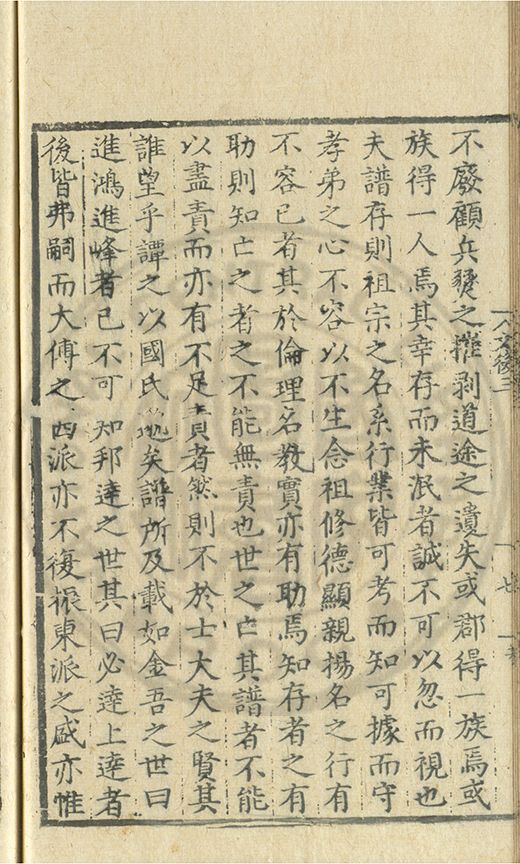 不廢顧兵燹之摧剥道途之遺失或郡得一族焉或
族得一人焉其幸存而未泯者誠不可以忽而視也
夫譜存則祖宗之名系行業皆可考而知可據而守
孝弟之心不容以不生念祖修德顯親揚名之行有
不容已者其於倫理名教實亦有助焉知存者之有
助則知亡之者之不能無責也世之亡其譜者不能
以盡責而亦有不足責者然則不於士大夫之賢其
誰望乎譚之以國氏逖矣譜所及載如金吾之世曰
進鴻進峰者已不可知邦逵之世其曰必逹上逹者
後皆弗嗣而大傅之西派亦不復振東派之盛亦惟